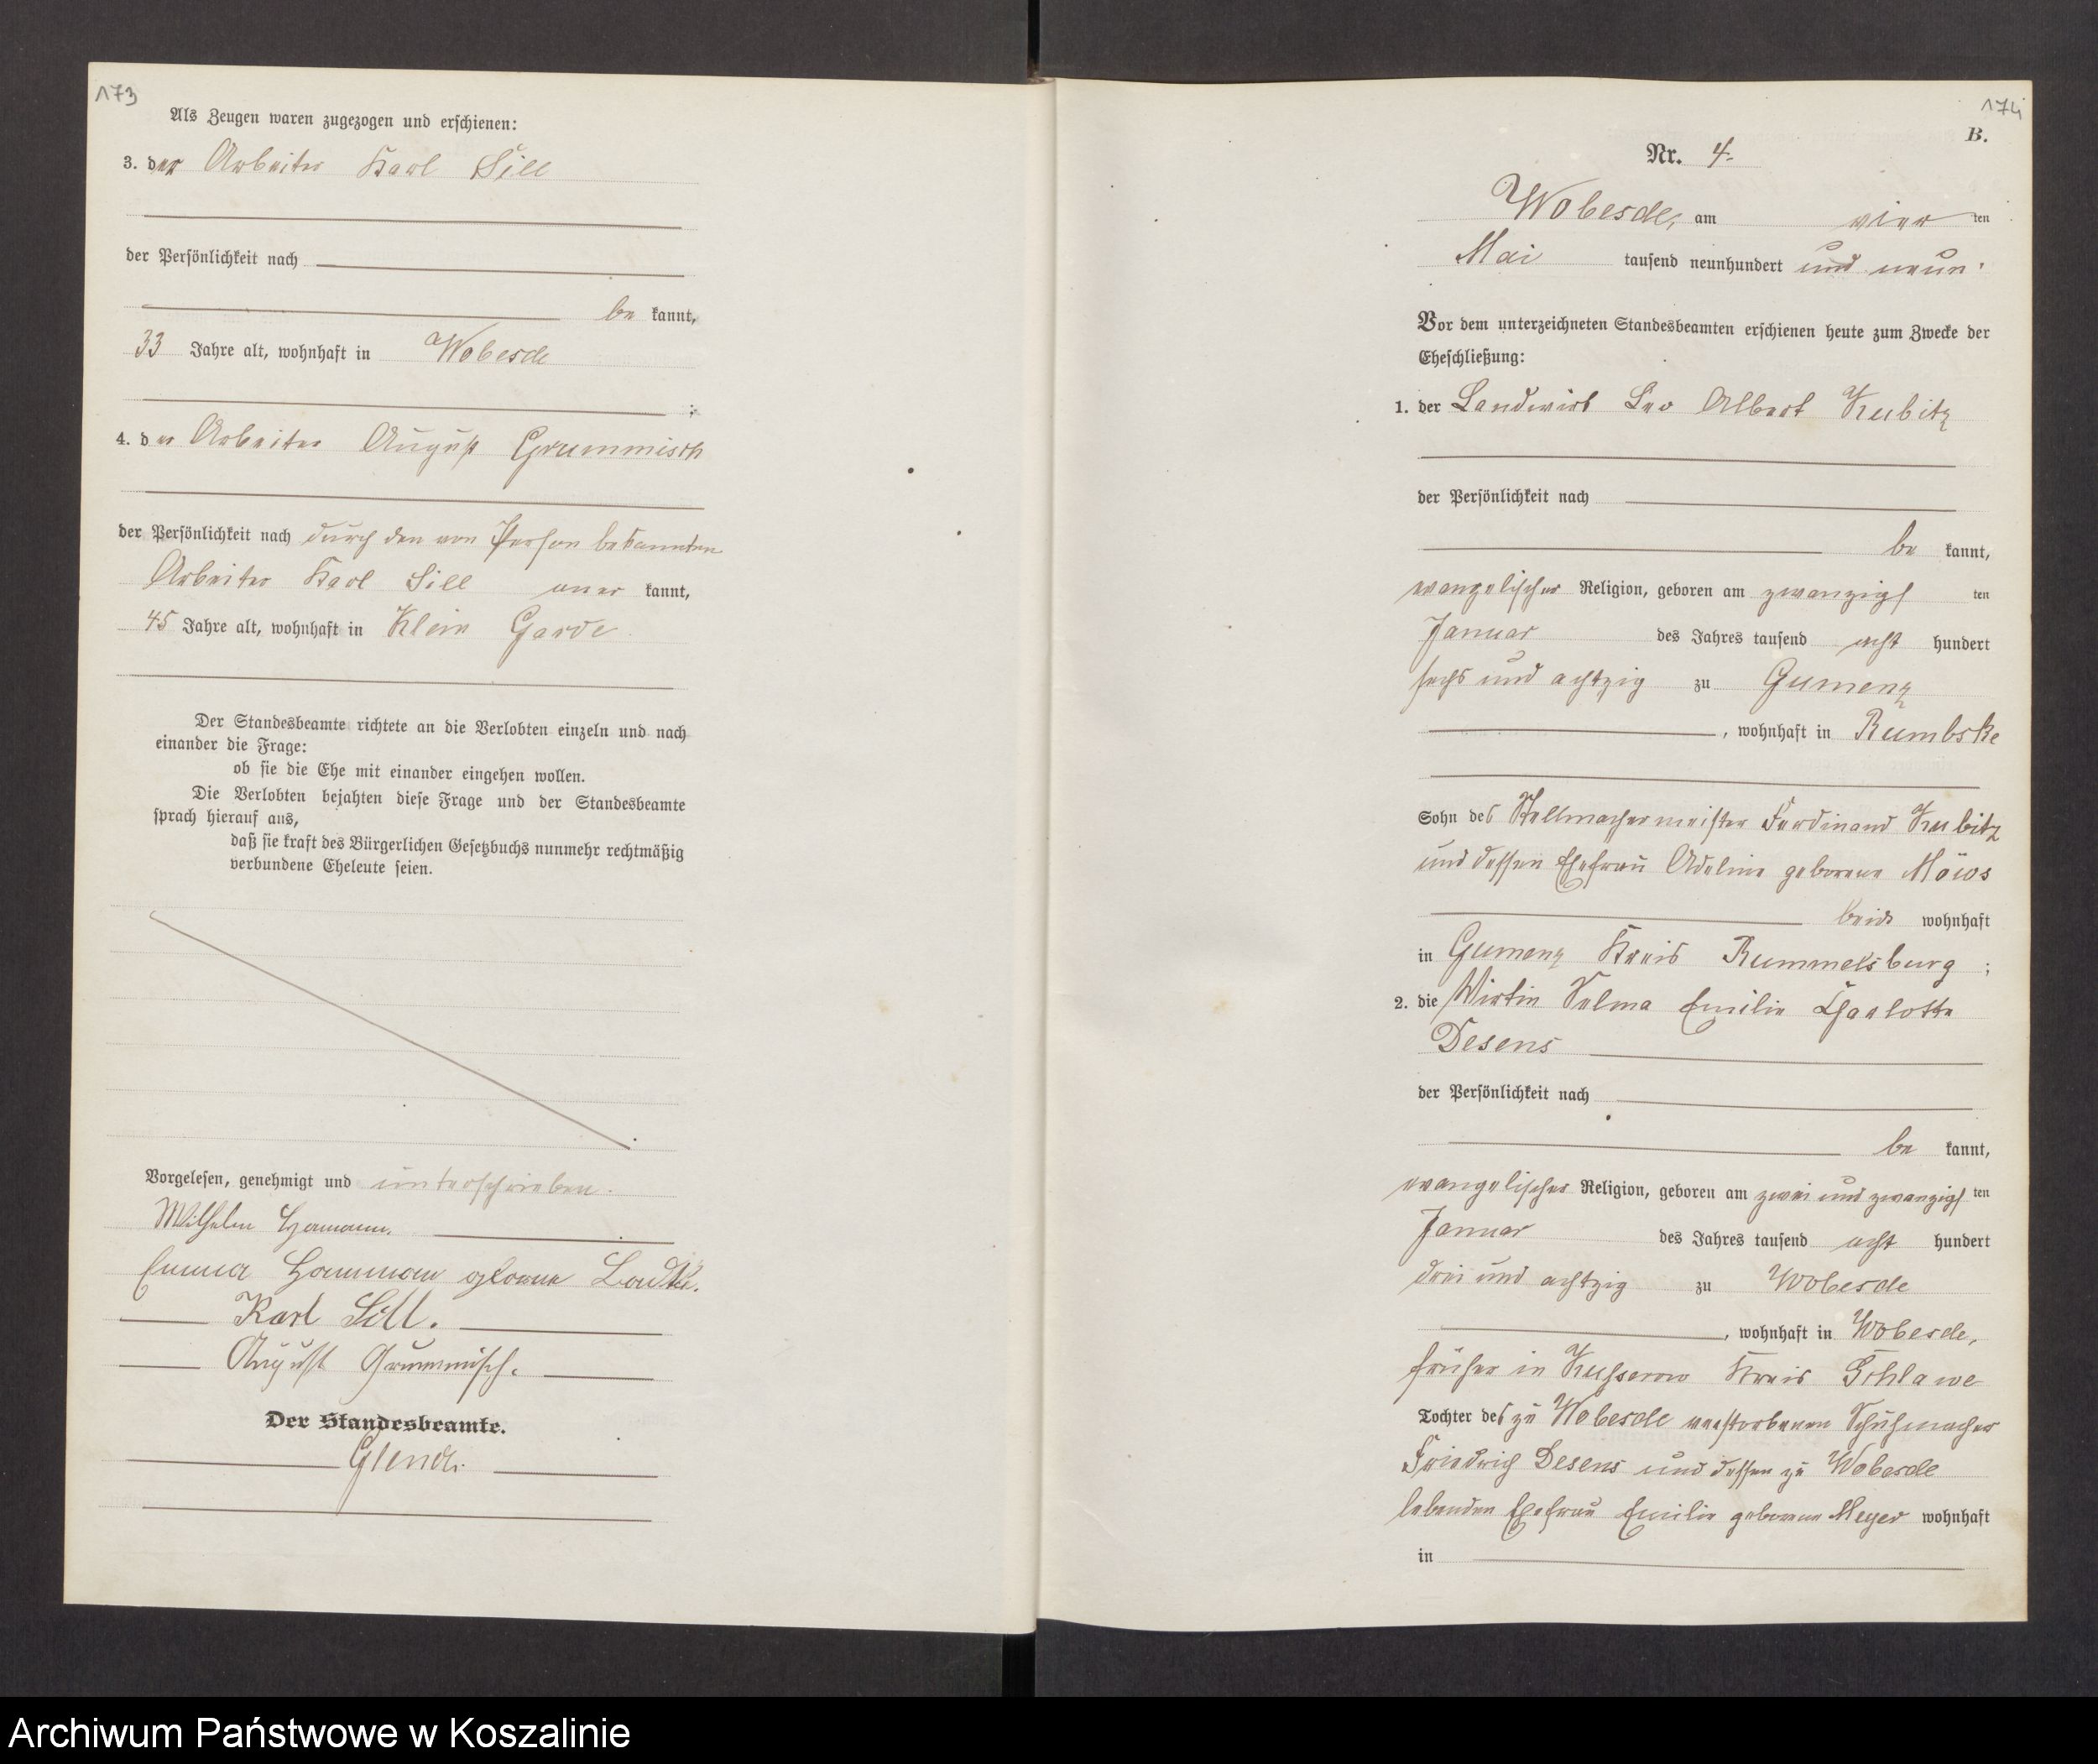 173
Als Zeugen waren zugezogen und erschienen:
3. der Arbeiter Karl Sill
der Persönlichkeit nach
be kannt,
33 Jahre alt, wohnhaft in Wobesde
;
4. der Arbeiter August Grummisch
der Persönlichkeit nach durch den von Person bekannten
Arbeiter Karl Sill aner kannt,
45 Jahre alt, wohnhaft in Klein Garde
Der Standesbeamte richtete an die Verlobten einzeln und nach
einander die Frage:
ob sie die Ehe mit einander eingehen wollen.
Die Verlobten bejahten diese Frage und der Standesbeamte
sprach hierauf aus,
daß sie kraft des Bürgerlichen Gesetzbuchs nunmehr rechtmäßig
verbundene Eheleute seien.
Vorgelesen, genehmigt und unterschrieben.
Wilhelm Hamann.
Emma Hamann geborene Radtke.
Karl Sill.
August Grummisch.
Der Standesbeamte.
174
B.
Nr. 4.
Wobesde, am vier ten
Mai tausend neunhundert und neun.
Vor dem unterzeichneten Standesbeamten erschienen heute zum Zwecke der
Eheschließung:
1. der Landwirt Leo Albert Kubitz
der Persönlichkeit nach
be kannt,
evangelischer Religion, geboren am zwanzigs ten
Januar des Jahres tausend acht hundert
sechs und achtzig zu Gumenz
, wohnhaft in Rumbske
Sohn des Stellmachermeister Ferdinand Kubitz
und dessen Ehefrau Adeline geborene Möws
beide wohnhaft
in Gumenz Kreis Rummelsburg ;
2. die Wirtin Selma Emilie Charlotte
Desens
der Persönlichkeit nach
be kannt,
evangelischer Religion, geboren am zwei und zwanzigs ten
Januar des Jahres tausend acht hundert
drei und achtzig zu Wobesde
, wohnhaft in Wobesde,
früher in Kusserow Kreis Schlawe
Tochter des zu Wobesde verstorbenen Schuhmacher
Friedrich Desens und dessen zu Wobesde
lebenden Ehefrau Emilie geborene Meyer wohnhaft
in
Archiwum Państwowe w Koszalinie